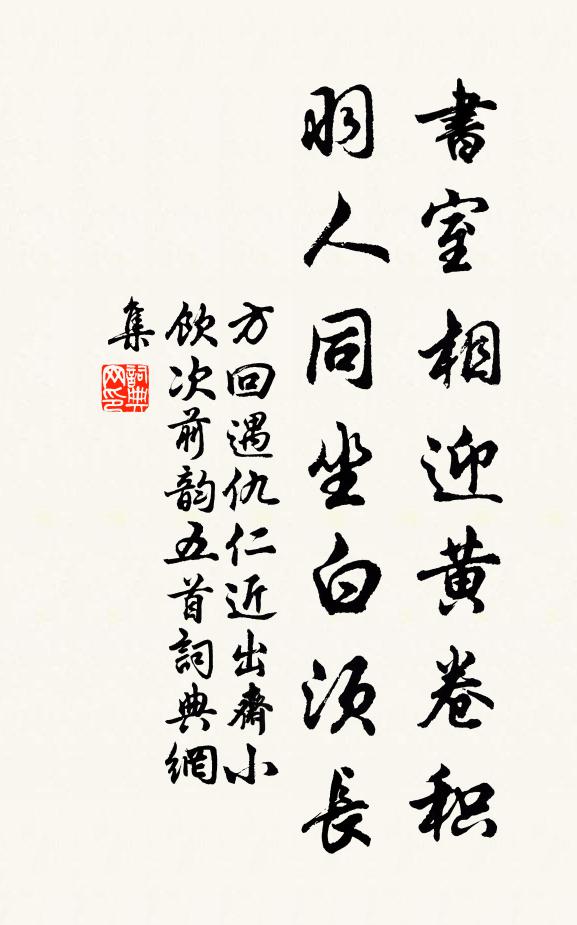 書室相迎黄卷积
羽人同坐白须長
方回遇仇仁近出齋小
飲次前韵五首詞典網
集
詞典
网印